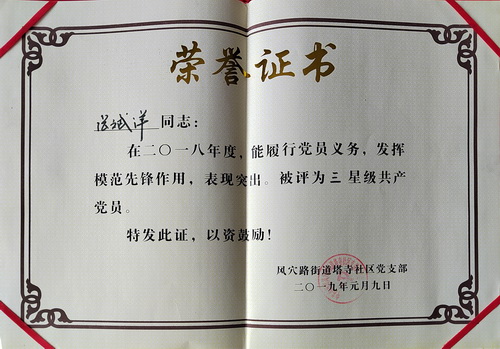 荣誉证书
同志：
在二〇一八年度，能履行党员义务，发挥
模范先锋作用，表现突出。被评为三星级共产
党员。
特发此证，以资鼓励！
风穴路街道塔寺社区党支部
二〇一九年元月九日